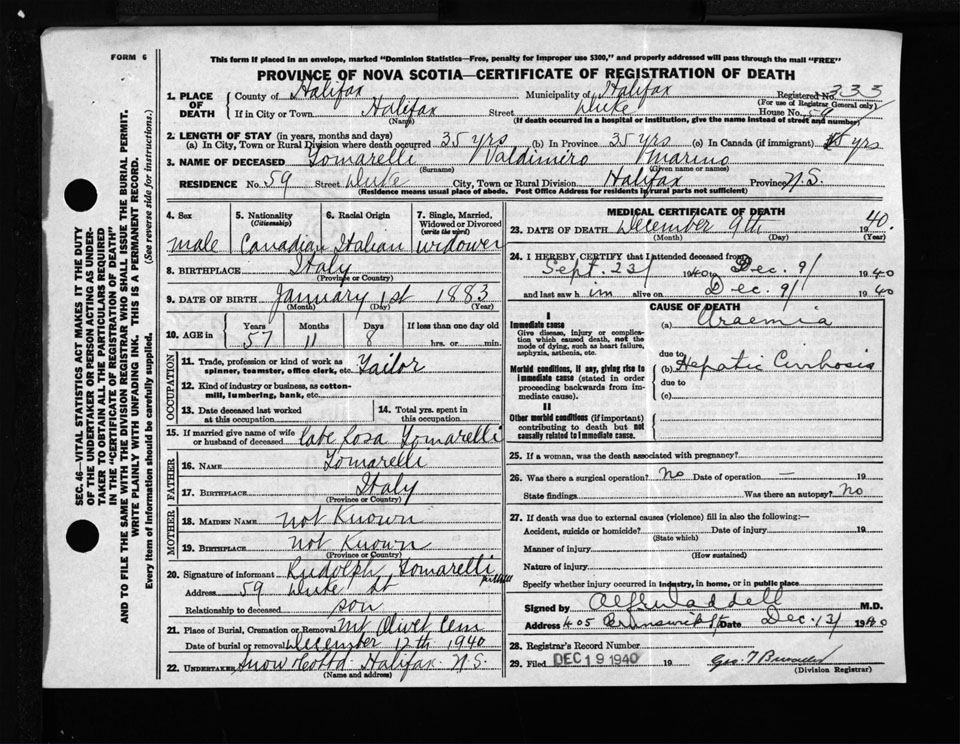 FORM 6
This form if placed in an envelope, marked "Dominion Statistics—Free, penalty for improper use $300," and properly addressed will pass through the mail "FREE"
PROVINCE OF NOVA SCOTIA—CERTIFICATE OF REGISTRATION OF DEATH
1. PLACE OF DEATH { County of Halifax Municipality of Halifax Registered No. 333
(For use of Registrar General only)
If in City or Town Halifax Street Duke House No. 59
(Name) (If death occurred in a hospital or institution, give the name instead of street and number)
2. LENGTH OF STAY (in years, months and days)
(a) In City, Town or Rural Division where death occurred 35 yrs (b) In Province 35 yrs (c) In Canada (if immigrant) yrs
3. NAME OF DECEASED Tomarelli Valdimiro Marino
(Surname) (Given name or names)
RESIDENCE No. 59 Street Duke City, Town or Rural Division Halifax Province N.S.
(Residence means usual place of abode. Post Office Address for residents in rural parts not sufficient)
4. Sex 5. Nationality (Citizenship) 6. Racial Origin 7. Single, Married, Widowed or Divorced (write the word)
male Canadian Italian widower
8. BIRTHPLACE Italy
(Province or Country)
9. DATE OF BIRTH January 1st 1883
(Month) (Day) (Year)
10. AGE in { Years Months Days If less than one day old
57 11 8 hrs. or min.
OCCUPATION
11. Trade, profession or kind of work as spinner, teamster, office clerk, etc. Tailor
12. Kind of industry or business, as cotton-mill, lumbering, bank, etc.
13. Date deceased last worked at this occupation 14. Total yrs. spent in this occupation
15. If married give name of wife or husband of deceased late Rosa Tomarelli
FATHER
16. NAME Tomarelli
17. BIRTHPLACE Italy
(Province or Country)
MOTHER
18. MAIDEN NAME not Known
19. BIRTHPLACE not Known
(Province or Country)
20. Signature of informant Rudolph Tomarelli
Address 59 Duke St
Relationship to deceased son
21. Place of Burial, Cremation or Removal Mt Olivet Cem
Date of burial or removal December 12th 1940
22. UNDERTAKER Snow Co Ltd Halifax N.S.
(Name and address)
MEDICAL CERTIFICATE OF DEATH
23. DATE OF DEATH December 9th 1940.
(Month) (Day) (Year)
24. I HEREBY CERTIFY that I attended deceased from
Sept. 23/ 1940 Dec. 9/ 1940
and last saw him alive on Dec. 9/ 1940
CAUSE OF DEATH
I
Immediate cause (a) Uraemia
Give disease, injury or complication which caused death, not the mode of dying, such as heart failure, asphyxia, asthenia, etc.
due to
Morbid conditions, if any, giving rise to immediate cause (stated in order proceeding backwards from immediate cause).
(b) Hepatic Cirrhosis
due to
(c)
II
Other morbid conditions (if important) contributing to death but not causally related to immediate cause.
25. If a woman, was the death associated with pregnancy?
26. Was there a surgical operation? No Date of operation —
State findings Was there an autopsy? No
27. If death was due to external causes (violence) fill in also the following:—
Accident, suicide or homicide? Date of injury 19
(State which)
Manner of injury
(How sustained)
Nature of injury
Specify whether injury occurred in industry, in home, or in public place
Signed by Alf Waddell M.D.
Address 405 Brunswick St Date Dec. 12/ 1940
28. Registrar's Record Number
29. Filed DEC 19 1940 19
(Division Registrar)
SEC. 46—VITAL STATISTICS ACT MAKES IT THE DUTY
OF THE UNDERTAKER OR PERSON ACTING AS UNDER-
TAKER TO OBTAIN ALL THE PARTICULARS REQUIRED
IN THE "CERTIFICATE OF REGISTRATION OF DEATH"
AND TO FILE THE SAME WITH THE DIVISION REGISTRAR WHO SHALL ISSUE THE BURIAL PERMIT.
WRITE PLAINLY WITH UNFADING INK. THIS IS A PERMANENT RECORD.
Every item of information should be carefully supplied. (See reverse side for instructions.)